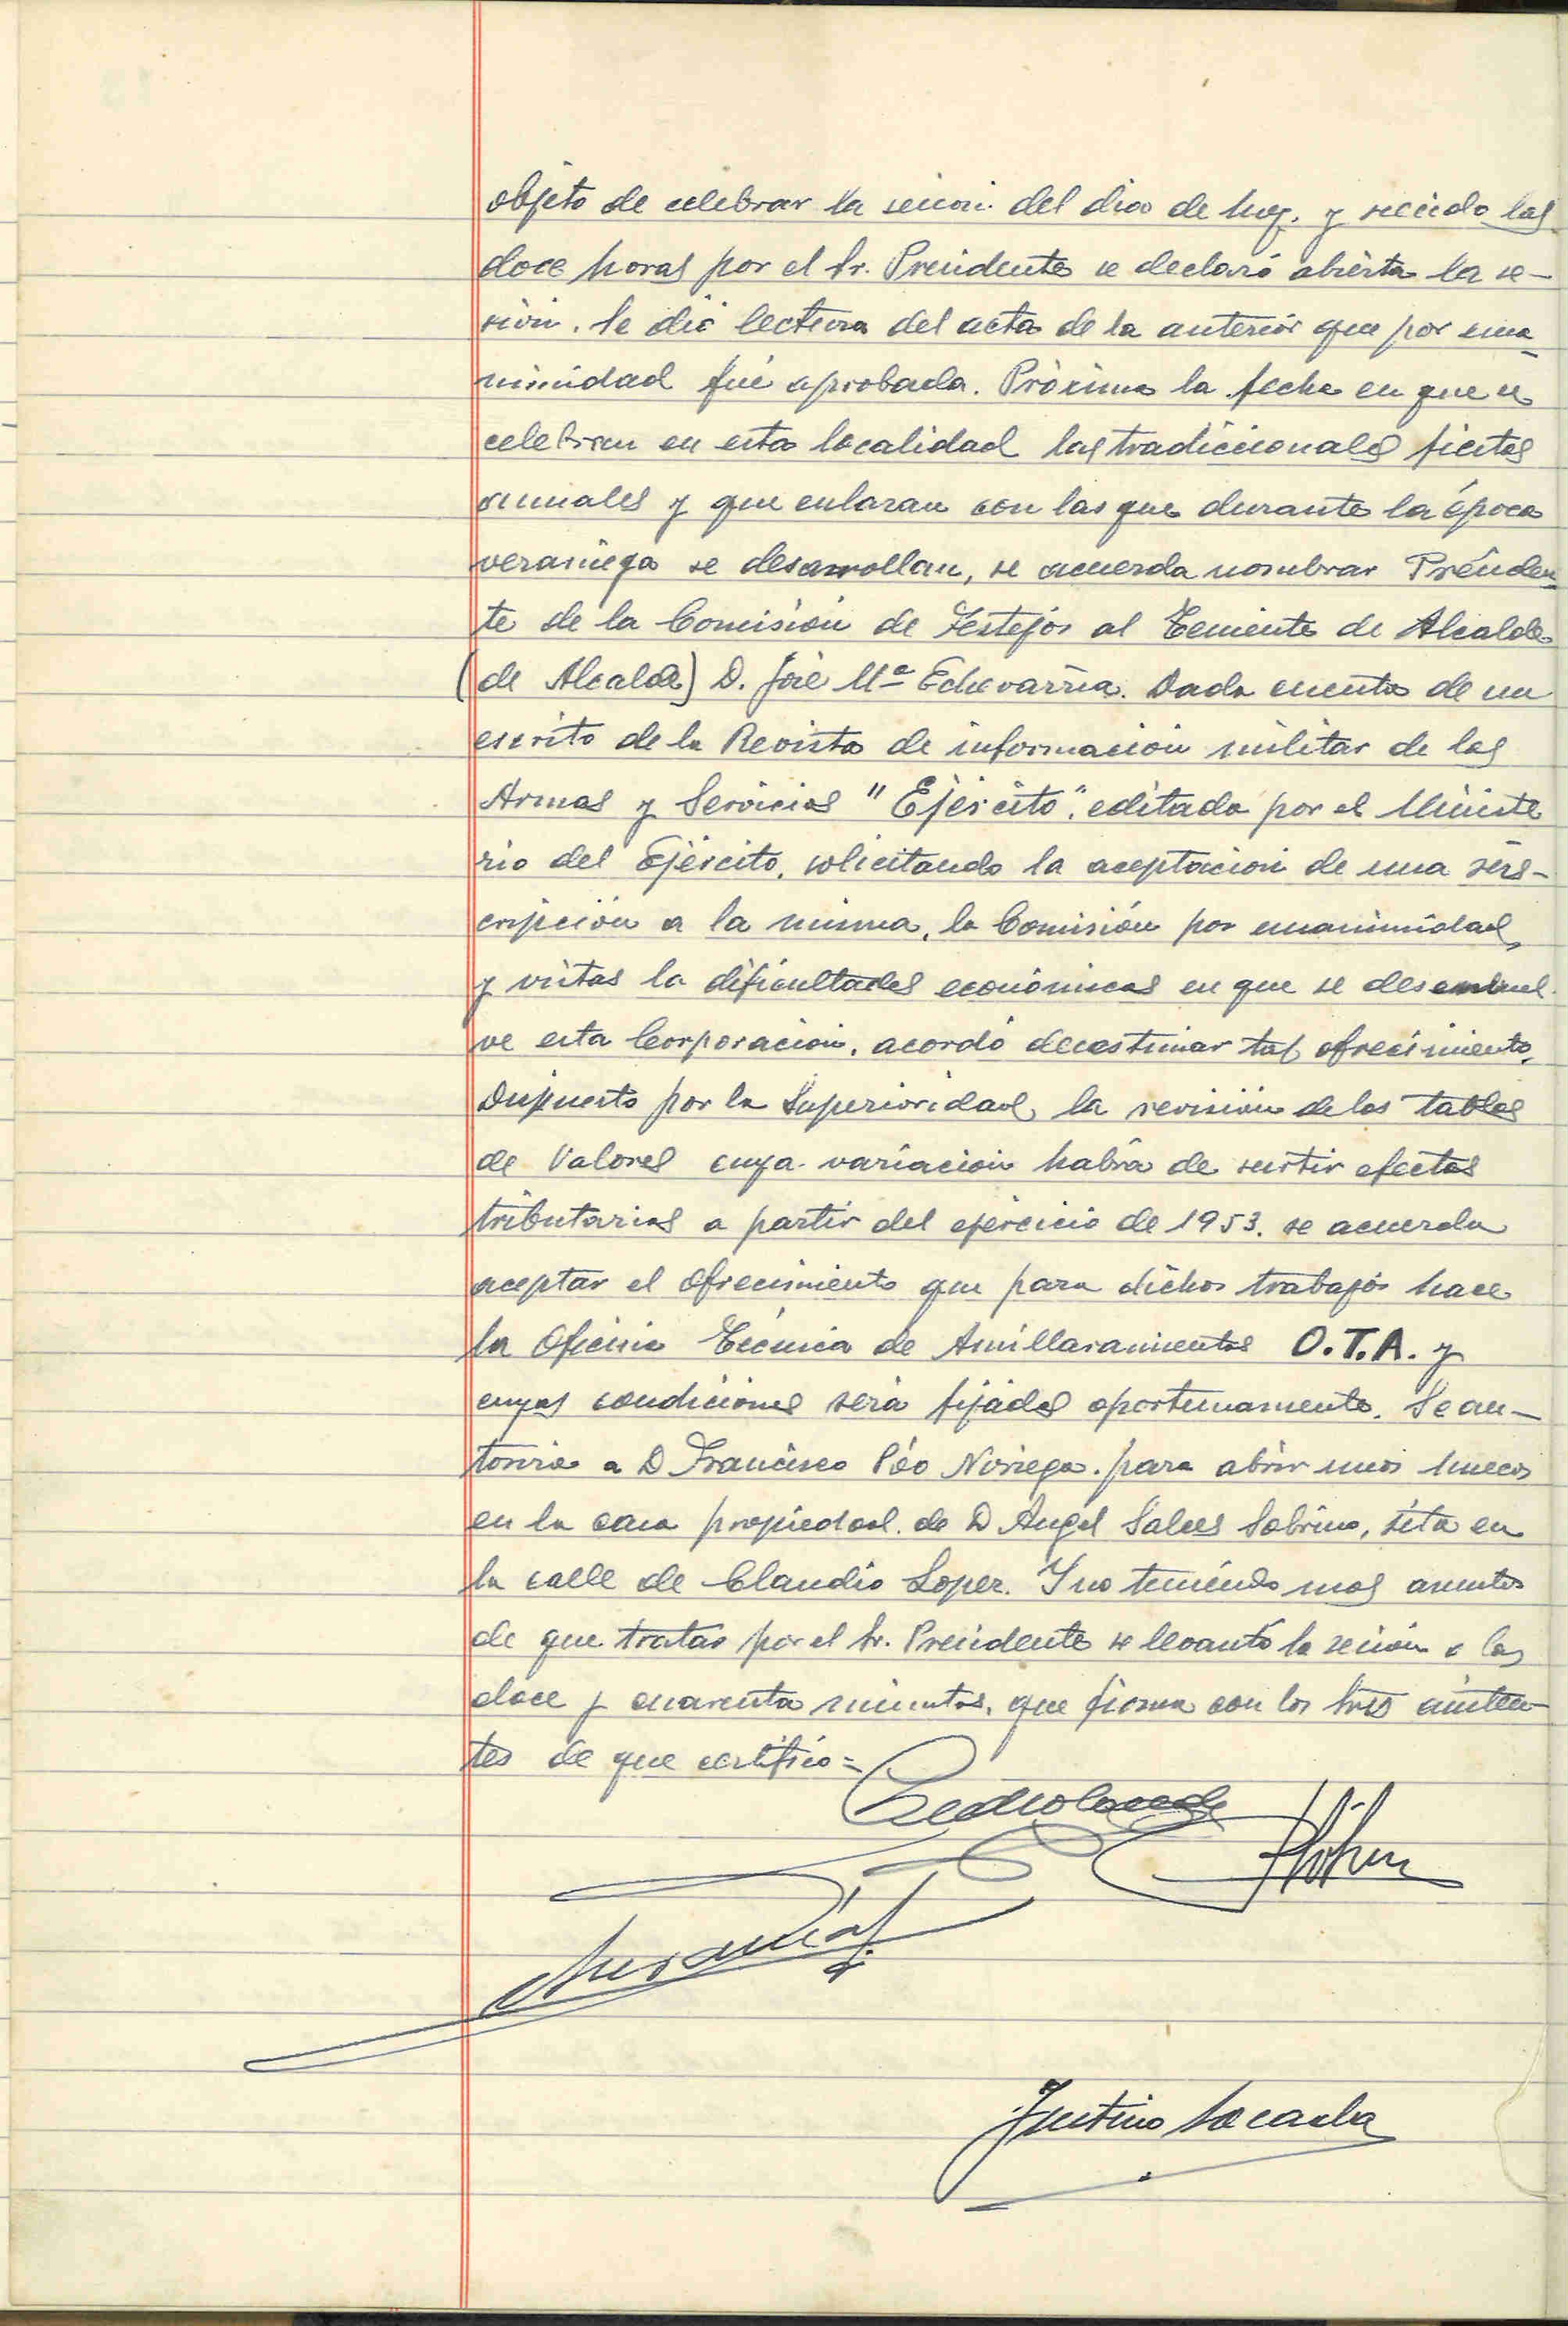 objeto de celebrar la sesión del dia de hoy. y siendo las
doce horas por el Sr. Presidente se declaró abierta la se-
sión. Se dió lectura del acta de la anterior que por una
nimidad fué aprobada. Próxima la fecha en que se
celebran en esta localidad las tradiccionales fiestas
anuales y que enlazan con las que durante la época
veraniega se desarrollan, se acuerda nombrar Presiden
te de la Comisión de Festejos al Teniente de Alcalde
(de Alcalde) D. José Mª Echevarría. Dada cuenta de un
escrito de la Revista de información militar de las
Armas y Servicios "Ejército". editada por el Ministe
rio del Ejército, solicitando la aceptación de una sus-
cripción a la misma, la Comisión por unanimidad,
y vistas la dificultades económicas en que se desenvuel
ve esta Corporación, acordó desestimar tal ofrecimiento.
Dispuesto por la Superioridad la revisión de las tablas
de Valores cuya variación habrá de surtir efectos
tributarios a partir del ejercicio de 1953. se acuerda
aceptar el ofrecimiento que para dichos trabajos hace
la Oficina Técnica de Amillaramientos O.T.A. y
cuyas condiciones será fijadas oportunamente. Se au-
toriza a D Francisco Póo Noriega. para abrir unos huecos
en la casa propiedad. de D Angel Salces Sobrino, sita en
la calle de Claudio Lopez. Y no teniendo mas asuntos
de que tratar por el Sr. Presidente se levantó la sesión a las
doce y cuarenta minutos, que firma con los Sres asisten
tes de que certifico=
Justino Lecanda